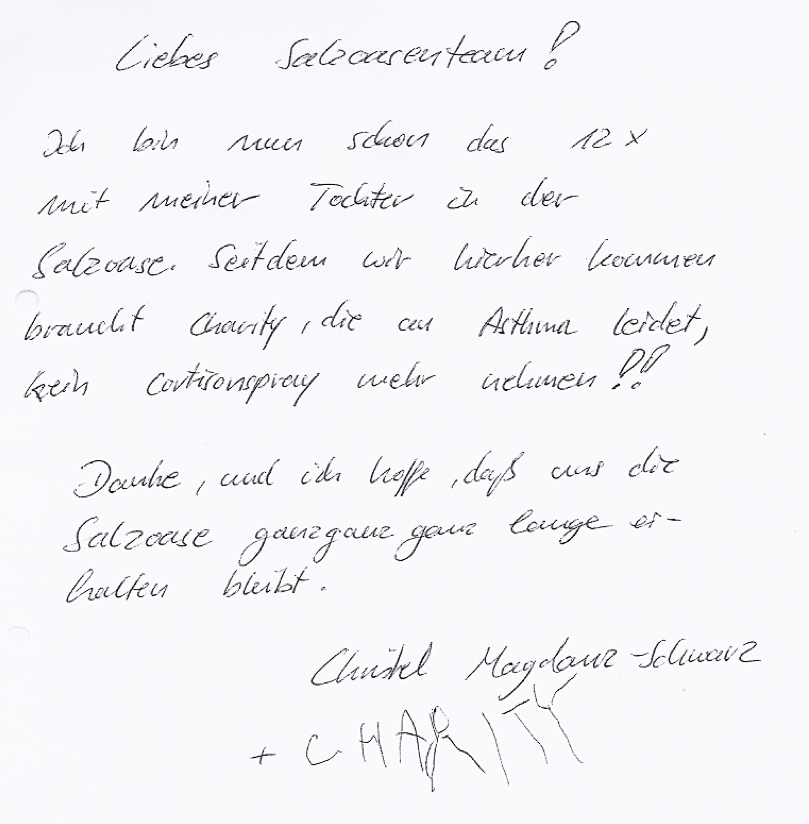 Liebes Salzoasenteam!
Ich bin nun schon das 12 x
mit meiner Tochter in der
Salzoase. Seitdem wir hierher kommen
braucht Charity, die an Asthma leidet,
kein Cortisonspray mehr nehmen!!
Danke, und ich hoffe, daß uns die
Salzoase ganzganz ganz lange er-
halten bleibt.
Christel Magdanz-Schwarz
+ CHARITY